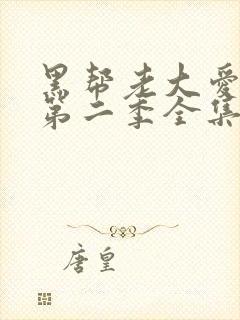 黑帮老大爱
第二季全集
唐皇